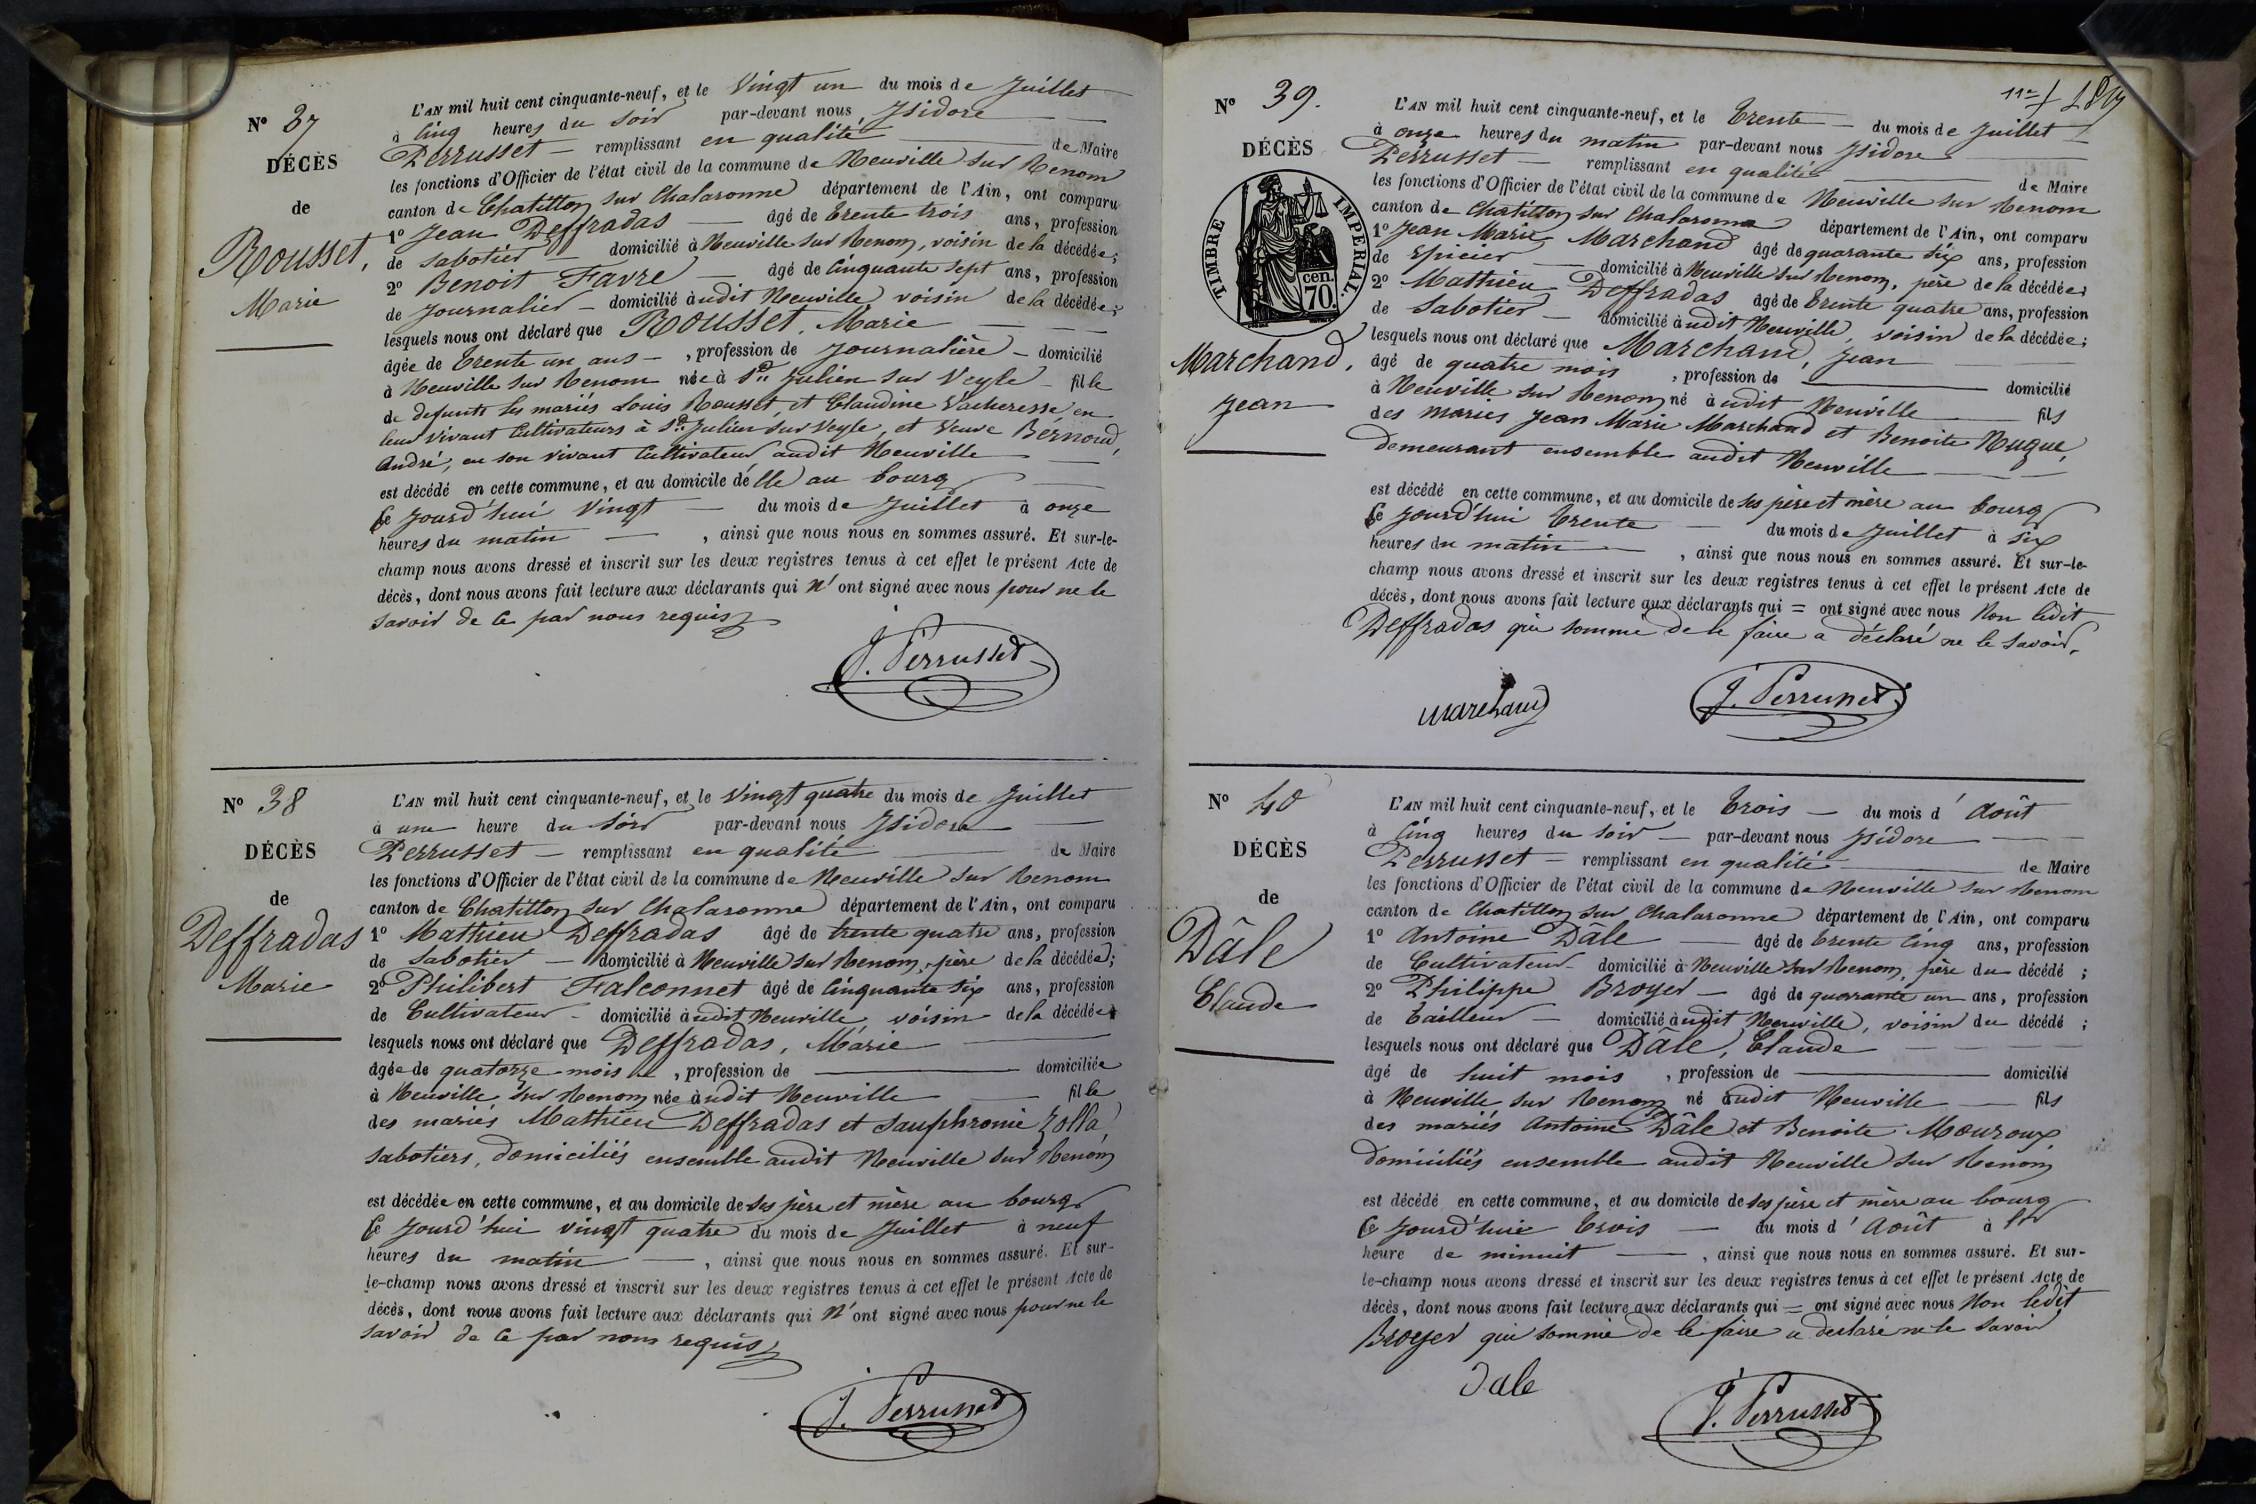 N° 37
DÉCÈS
de
Rousset,
Marie
L'AN mil huit cent cinquante-neuf, et le Vingt un du mois de Juillet
à Cinq heures du soir par-devant nous, Isidore
Perrusset remplissant en qualité de Maire
les fonctions d'Officier de l'état civil de la commune de Neuville sur Renom
canton de Chatillon sur Chalaronne département de l'Ain, ont comparu
1° Jean Deffradas âgé de trente trois ans, profession
de sabotier domicilié à Neuville sur Renom, voisin de la décédée;
2° Benoit Favre âgé de Cinquante sept ans, profession
de Journalier domicilié audit Neuville voisin de la décédée;
lesquels nous ont déclaré que Rousset, Marie
âgée de trente un ans, profession de Journalière domicilié
à Neuville sur Renom née à St Julien sur Veyle fille
de defunts les mariés Louis Rousset, et Claudine Vacheresse, en
leur vivant Cultivateurs à St Julien sur Veyle, et Veuve Bernoud,
André, en son vivant Cultivateur audit Neuville
est décédé en cette commune, et au domicile d'elle au bourg
Ce jourd'hui Vingt du mois de Juillet à onze
heures du matin, ainsi que nous nous en sommes assuré. Et sur-le-
champ nous avons dressé et inscrit sur les deux registres tenus à cet effet le présent Acte de
décès, dont nous avons fait lecture aux déclarants qui n'ont signé avec nous pour ne le
savoir de ce par nous requis
J. Perrusset
N° 38
DÉCÈS
de
Deffradas
Marie
L'AN mil huit cent cinquante-neuf, et le Vingt quatre du mois de Juillet
à une heure du soir par-devant nous Isidore
Perrusset remplissant en qualité de Maire
les fonctions d'Officier de l'état civil de la commune de Neuville sur Renom
canton de Chatillon sur Chalaronne département de l'Ain, ont comparu
1° Mathieu Deffradas âgé de trente quatre ans, profession
de sabotier domicilié à Neuville sur Renom, père de la décédée;
2° Philibert Falconnet âgé de Cinquante six ans, profession
de Cultivateur domicilié audit Neuville, voisin de la décédée
lesquels nous ont déclaré que Deffradas, Marie
âgée de quatorze mois, profession de domiciliée
à Neuville sur Renom née audit Neuville fille
des mariés Mathieu Deffradas et Sauphronie Zolla,
sabotiers, domiciliés ensemble audit Neuville sur Renom
est décédée en cette commune, et au domicile de ses père et mère au bourg
Ce jourd'hui vingt quatre du mois de Juillet à neuf
heures du matin, ainsi que nous nous en sommes assuré. Et sur-
le-champ nous avons dressé et inscrit sur les deux registres tenus à cet effet le présent Acte de
décès, dont nous avons fait lecture aux déclarants qui n'ont signé avec nous pour ne le
savoir de ce par nous requis
J. Perrusset
N° 39.
DÉCÈS
TIMBRE IMPERIAL.
70. cen.
Marchand,
Jean
L'AN mil huit cent cinquante-neuf, et le Trente du mois de Juillet
à onze heures du matin par-devant nous Isidore
Perrusset remplissant en qualité de Maire
les fonctions d'Officier de l'état civil de la commune de Neuville sur Renom
canton de Chatillon sur Chalaronne département de l'Ain, ont comparu
1° Jean Marie Marchand âgé de quarante six ans, profession
de Epicier domicilié à Neuville sur Renom, père de la décédée;
2° Mathieu Deffradas âgé de trente quatre ans, profession
de Sabotier domicilié audit Neuville, voisin de la décédée;
lesquels nous ont déclaré que Marchand, Jean
âgé de quatre mois, profession de domicilié
à Neuville sur Renom né audit Neuville fils
des mariés Jean Marie Marchand et Benoite Nugue,
demeurant ensemble audit Neuville
est décédé en cette commune, et au domicile de ses père et mère au bourg
Ce jourd'hui trente du mois de Juillet à six
heures du matin, ainsi que nous nous en sommes assuré. Et sur-le-
champ nous avons dressé et inscrit sur les deux registres tenus à cet effet le présent Acte de
décès, dont nous avons fait lecture aux déclarants qui = ont signé avec nous Non ledit
Deffradas qui sommé de le faire a déclaré ne le savoir.
Marchand
J. Perrusset
N° 40
DÉCÈS
de
Dâle
Claude
L'AN mil huit cent cinquante-neuf, et le Trois du mois d'Août
à Cinq heures du soir par-devant nous Isidore
Perrusset remplissant en qualité de Maire
les fonctions d'Officier de l'état civil de la commune de Neuville sur Renom
canton de Chatillon sur Chalaronne département de l'Ain, ont comparu
1° Antoine Dâle âgé de trente cinq ans, profession
de Cultivateur domicilié à Neuville sur Renom, père du décédé;
2° Philippe Broyer âgé de quarante un ans, profession
de Tailleur domicilié audit Neuville, voisin du décédé;
lesquels nous ont déclaré que Dâle, Claude
âgé de huit mois, profession de domicilié
à Neuville sur Renom né audit Neuville fils
des mariés Antoine Dâle et Benoite Mouroux
domiciliés ensemble audit Neuville sur Renom
est décédé en cette commune, et au domicile de ses père et mère au bourg
Ce jourd'hui trois du mois d'Août à
heure de minuit, ainsi que nous nous en sommes assuré. Et sur-
le-champ nous avons dressé et inscrit sur les deux registres tenus à cet effet le présent Acte de
décès, dont nous avons fait lecture aux déclarants qui = ont signé avec nous Non ledit
Broyer qui sommé de le faire a déclaré ne le savoir
Dale
J. Perrusset